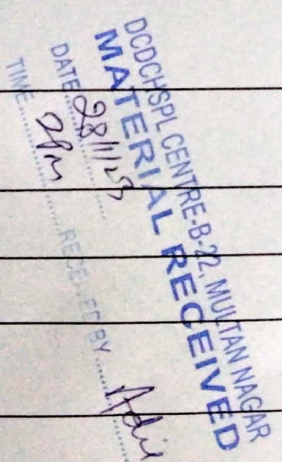 DCDCHSPL CENTRE-B-22, MULTAN NAGAR
MATERIAL RECEIVED
DATE 28/11/23
TIME 2pm RECEIVED BY Adil